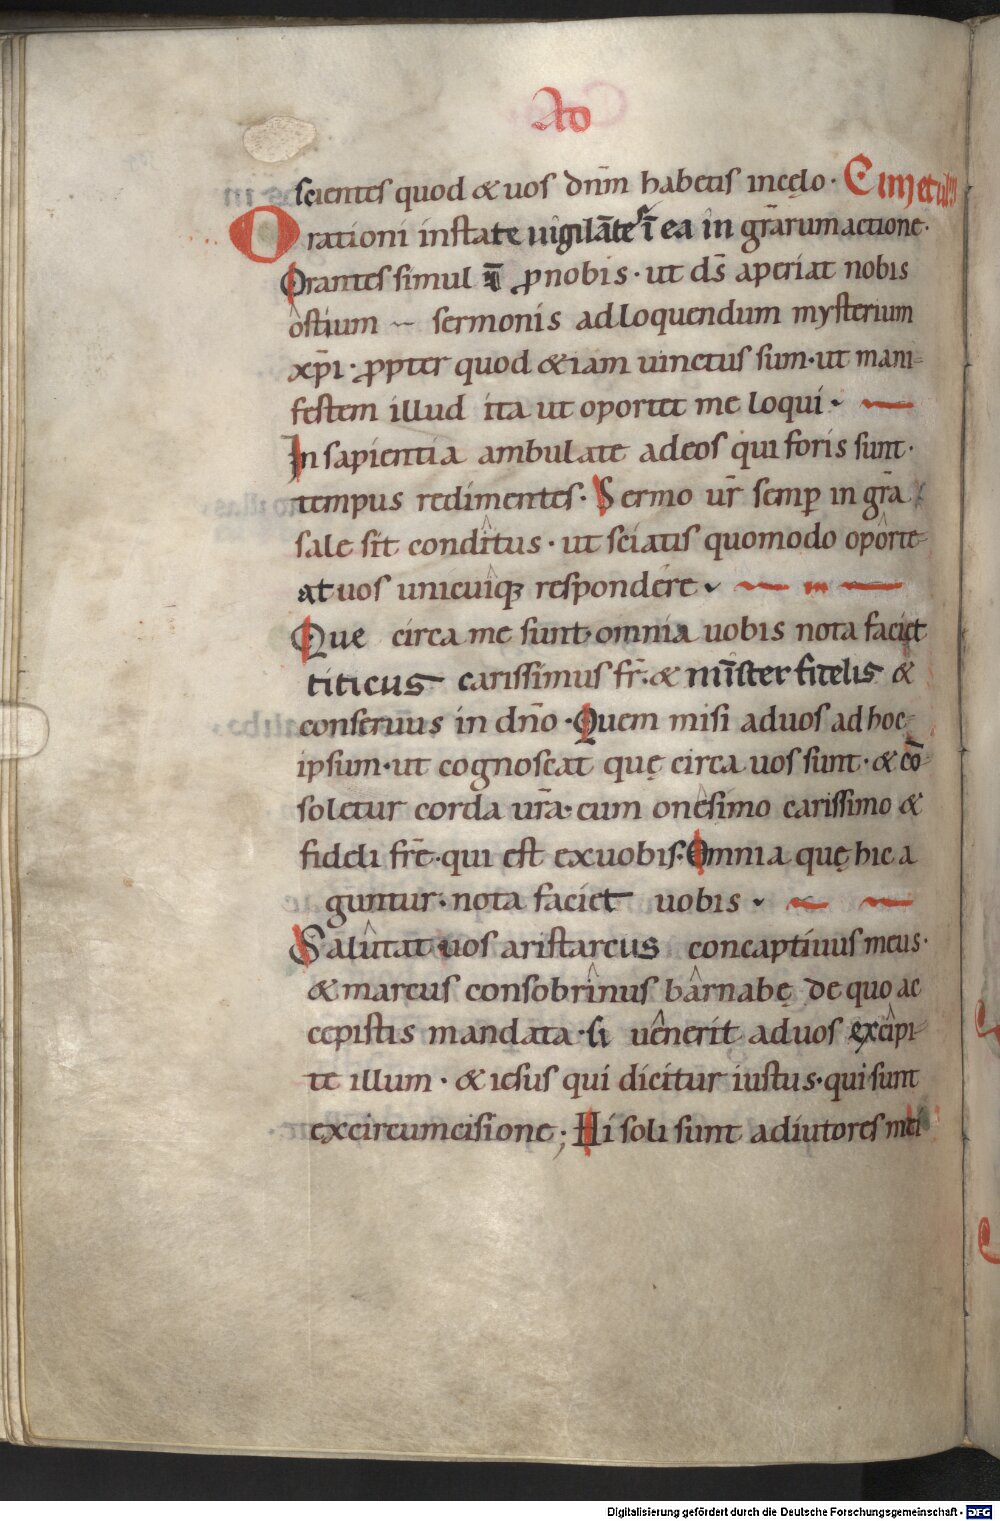 Ad
scientes quod & uos dn̄m habetis incęlo·
Orationi instate uigilātes ī ea in gr̄arum actione·
Orantes simul ī pnobis· ut ds̄ aperiat nobis
ostium sermonis adloquendum mysterium
xp̄i· ppter quod &iam uinctus sum· ut mani-
festem illud ita ut oportet me loqui·
In sapientia ambulate adeos qui foris sunt·
tempus redimentes· Sermo ur̄ semp in gr̄a
sale sit conditus· ut sciatis quomodo oporte-
at uos unicuiq; respondere·
Que circa me sunt· omnia uobis nota faciet
titicus carissimus fr̄· & mīster fidelis &
conseruus in dn̄o· Quem misi aduos ad hoc-
ipsum· ut cognoscat quę circa uos sunt· & cō-
soletur corda ur̄a· cum onesimo carissimo &
fideli fr̄e· qui est exuobis· Omnia quę hic a
guntur· nota faciet uobis·
Salutat uos aristarcus concaptiuus meus·
& marcus consobrinus barnabę de quo ac
cepistis mandata· si uenerit aduos excipi-
te illum· & iesus qui dicitur iustus· qui sunt
excircumcisione; Hi soli sunt adiutores mei
Digitalisierung gefördert durch die Deutsche Forschungsgemeinschaft - DFG